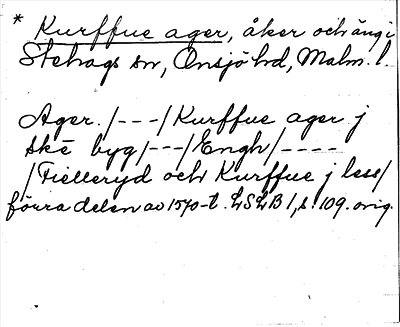 * Kurffue ager, åker och äng i
Stehags sn, Onsjö hd, Malm. l.
Ager. /---/ Kurffue ager j
ske byg /---/ Engh /----
/ Fielleryd och Kurffue j less /
förra delen av 1570-t. LSLB 1, s. 109. orig.